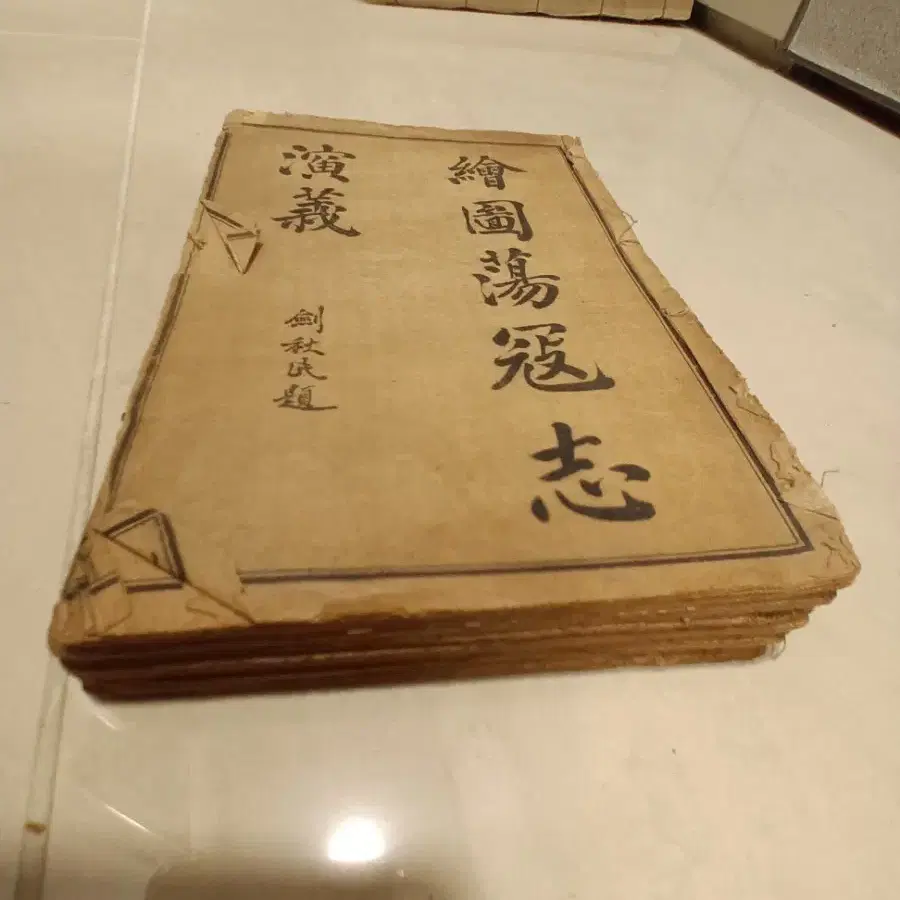 繪圖蕩寇志
演義
劍秋氏題